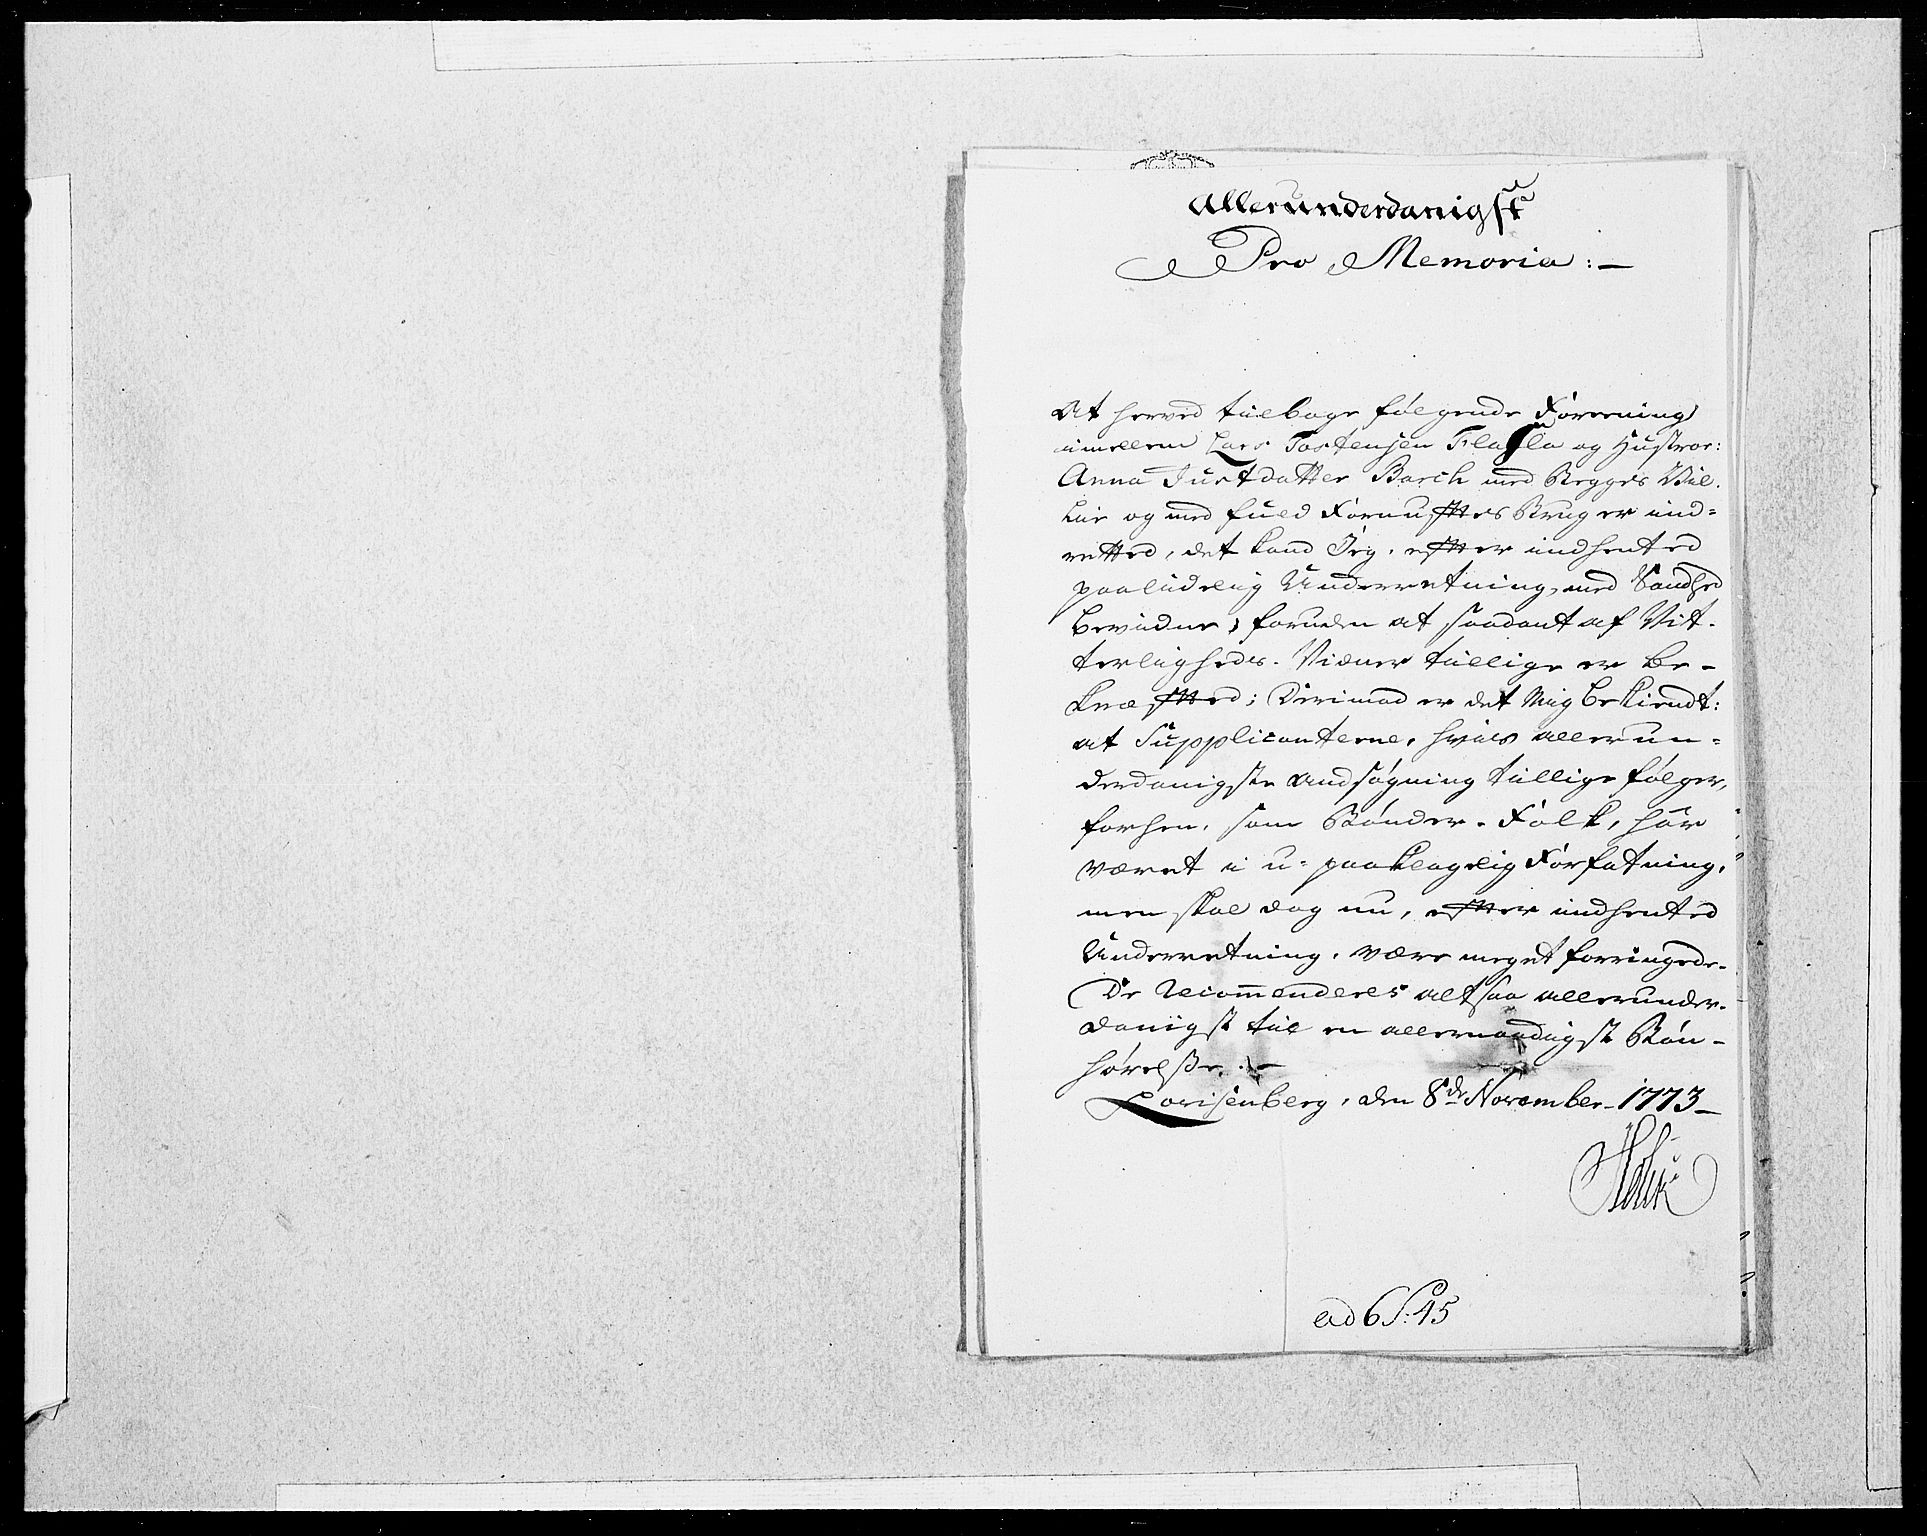 Allerunderdanigst
Pro Memoria :-
At herved tilbage følgende Foreening
imellem Lars Tostensen Flasla og Hustroe:
Anna Justdatter Barch med Begges Vil-
kie og med fuld Fornufftes Brug er ind=
retted, det kand Jeg, effter indhented
paalidelig Underretning, med Sandhed
bevidne, foruden at saadant af Vit-
terligheds-Vidner tillige er be-
kræffted; Derimod er det Mig bekiendt:
at Supplicanterne, hvis allerun=
derdanigste Andsøgning tillige følger,
forhen, som Bønder-Folk, har
været i u-paaklagelig Forfatning,
men skal dog nu, effter indhented
Underretning, være meget forringede.
De Recommenderes altsaa allerunder-
danigst til en allernaadigst Bøn-
hørelsse.-
den 8de November - 1773 -
ad 6 S: 45